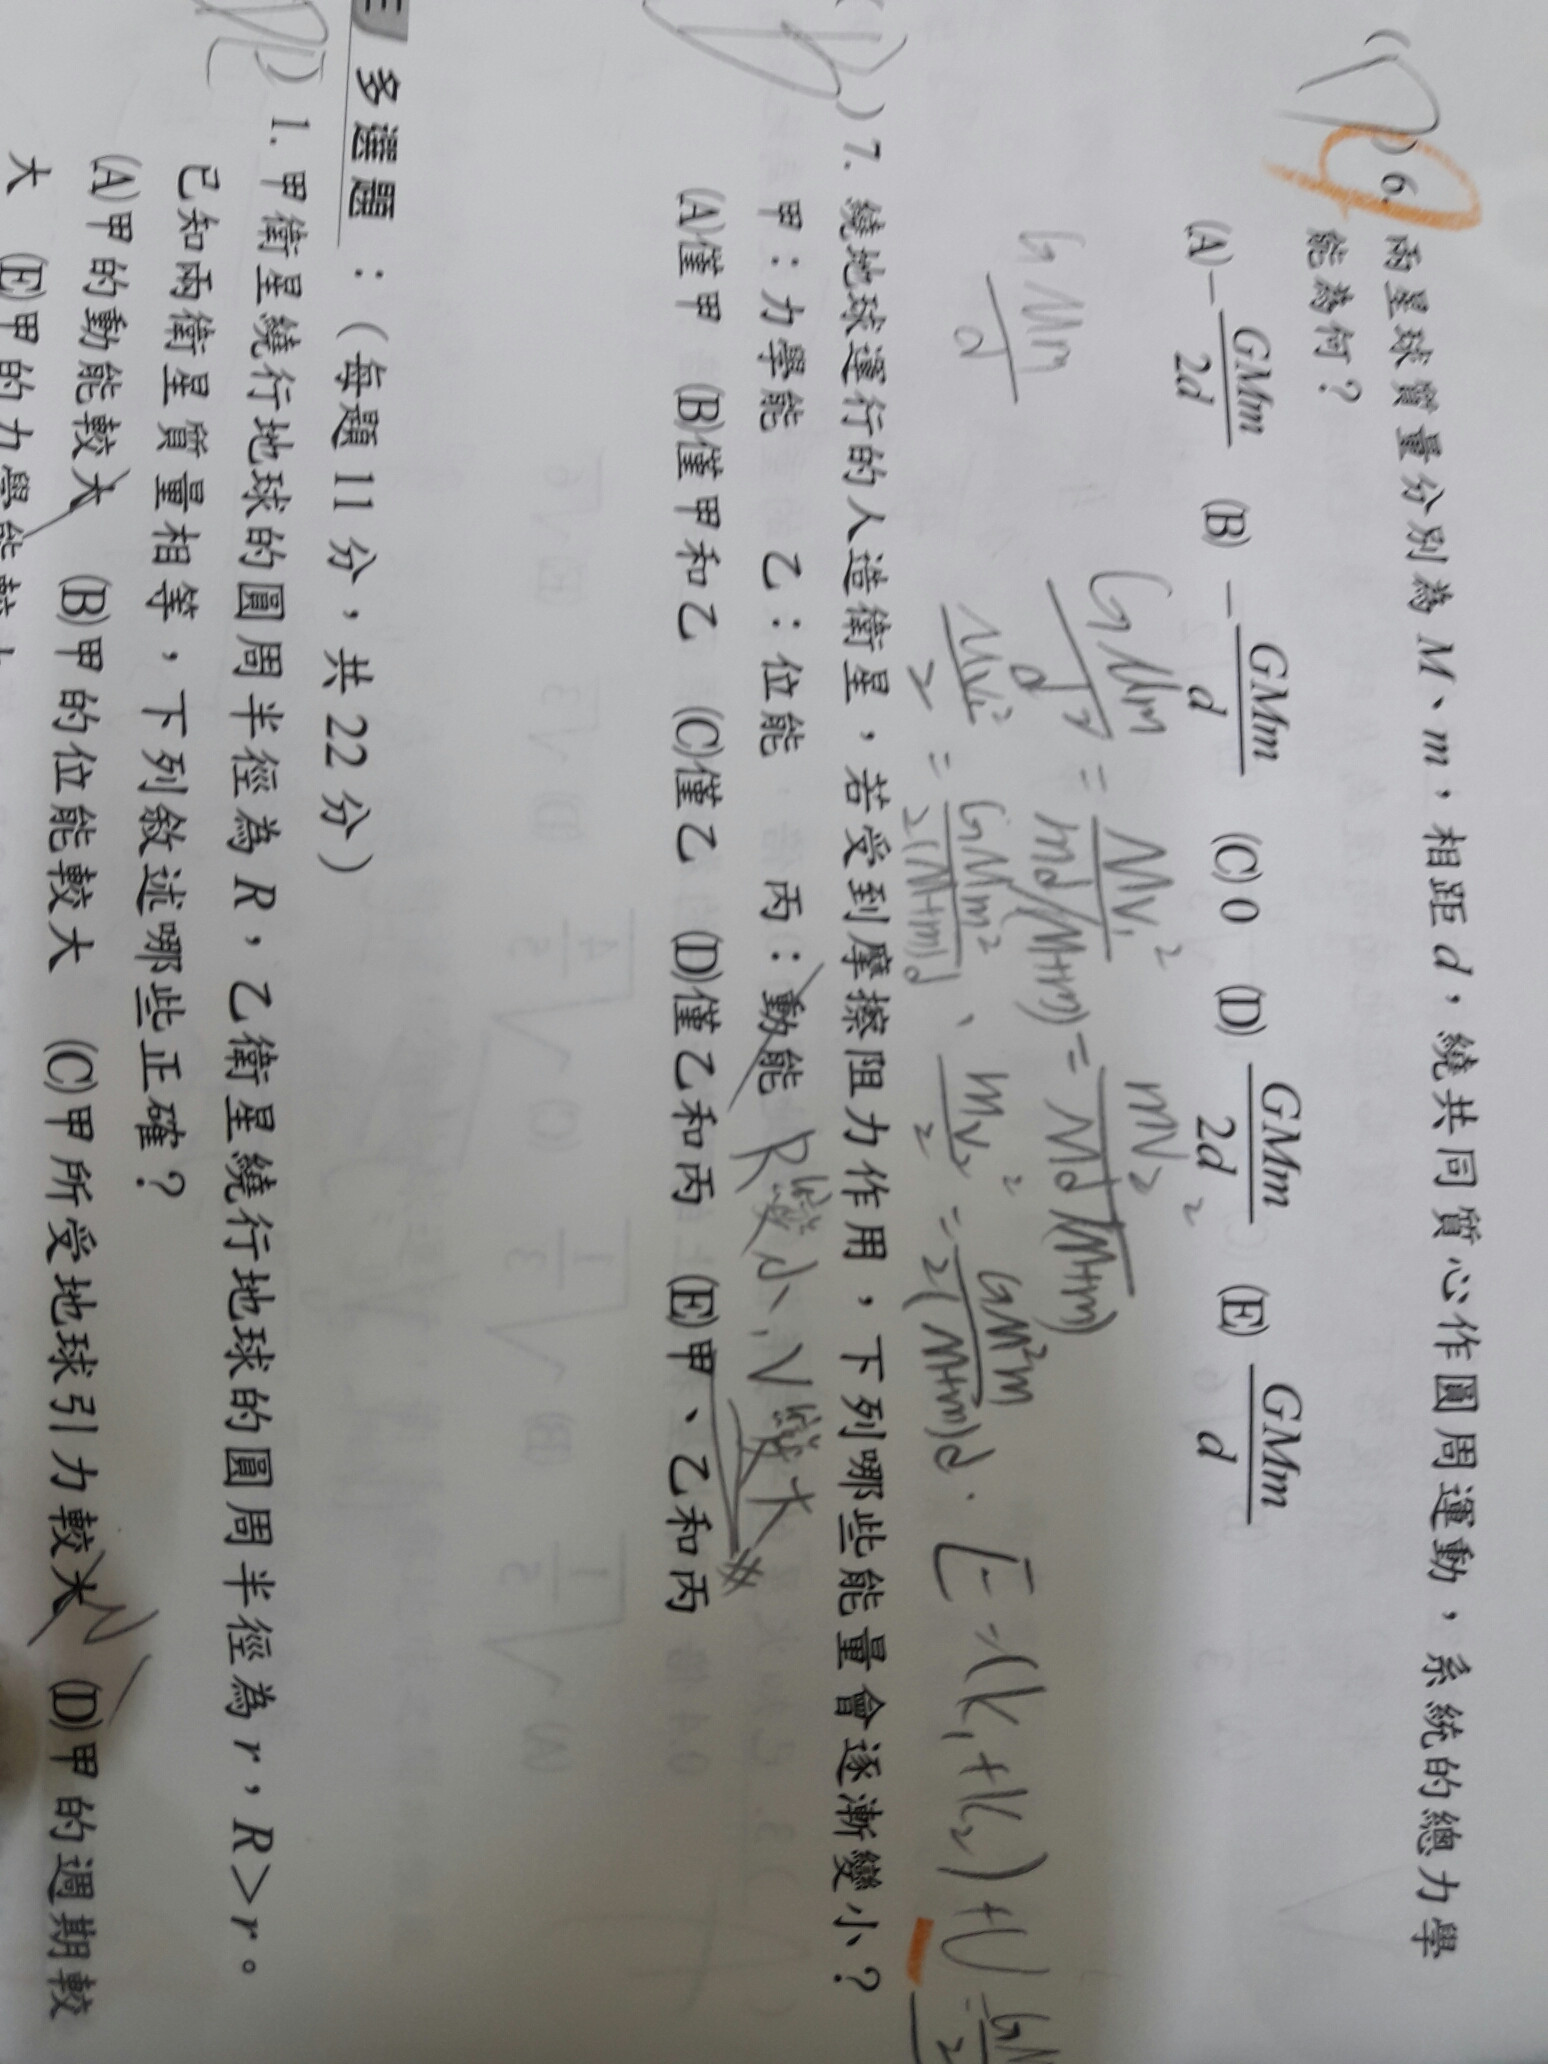 6. 兩星球質量分別為 M、m，相距 d，繞共同質心作圓周運動，系統的總力學
能為何？
(A) −GMm/2d (B) −GMm/d (C) 0 (D) GMm/2d (E) GMm/d
GMm/d
GMm/d² = Mv₁²/md/(M+m) = mv₂²/Md/(M+m)
Mv₁²/2 = GMm²/2(M+m)d、mv₂²/2 = GM²m/2(M+m)d. E=(k₁+k₂)+U=
7. 繞地球運行的人造衛星，若受到摩擦阻力作用，下列哪些能量會逐漸變小？
甲：力學能 乙：位能 丙：動能 R變小、V變大
(A)僅甲 (B)僅甲和乙 (C)僅乙 (D)僅乙和丙 (E)甲、乙和丙
三 多選題：（每題 11 分，共 22 分）
1. 甲衛星繞行地球的圓周半徑為 R，乙衛星繞行地球的圓周半徑為 r，R＞r。
已知兩衛星質量相等，下列敘述哪些正確？
(A)甲的動能較大 (B)甲的位能較大 (C)甲所受地球引力較大 (D)甲的週期較
大 (E)甲的力學能較